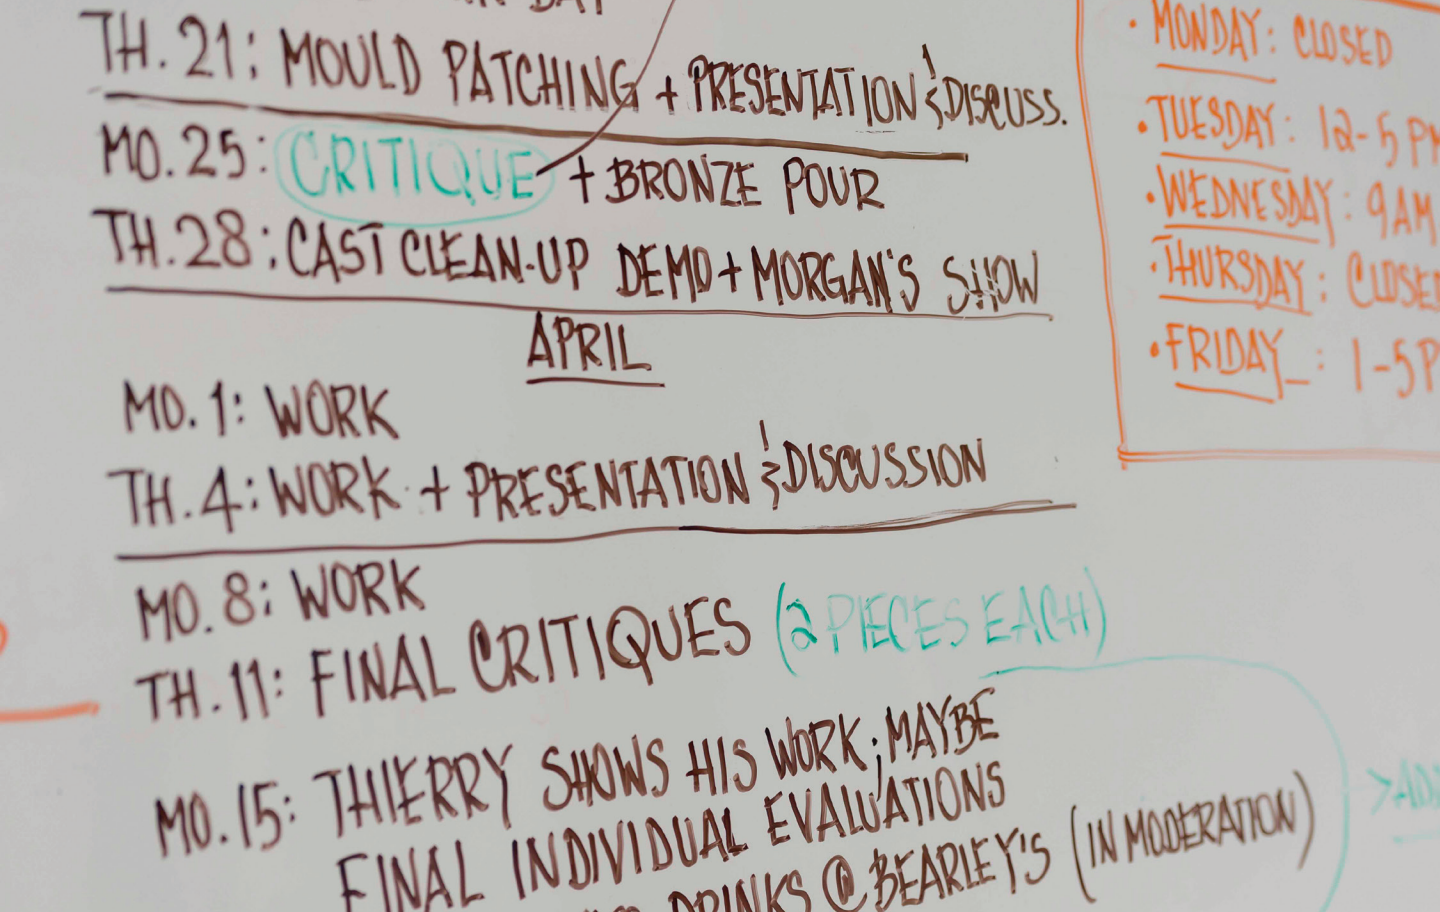 DAY
TH. 21: MOULD PATCHING + PRESENTATION & DISCUSS.
MO. 25: CRITIQUE + BRONZE POUR
TH. 28: CAST CLEAN-UP DEMO + MORGAN'S SHOW
APRIL
MO. 1: WORK
TH. 4: WORK + PRESENTATION & DISCUSSION
MO. 8: WORK
TH. 11: FINAL CRITIQUES (2 PIECES EACH)
MO. 15: THIERRY SHOWS HIS WORK; MAYBE
FINAL INDIVIDUAL EVALUATIONS
DRINKS @ BEARLEY'S (IN MODERATION)
• MONDAY: CLOSED
• TUESDAY: 12-5 PM
• WEDNESDAY: 9AM
• THURSDAY: CLOSED
• FRIDAY_: 1-5P